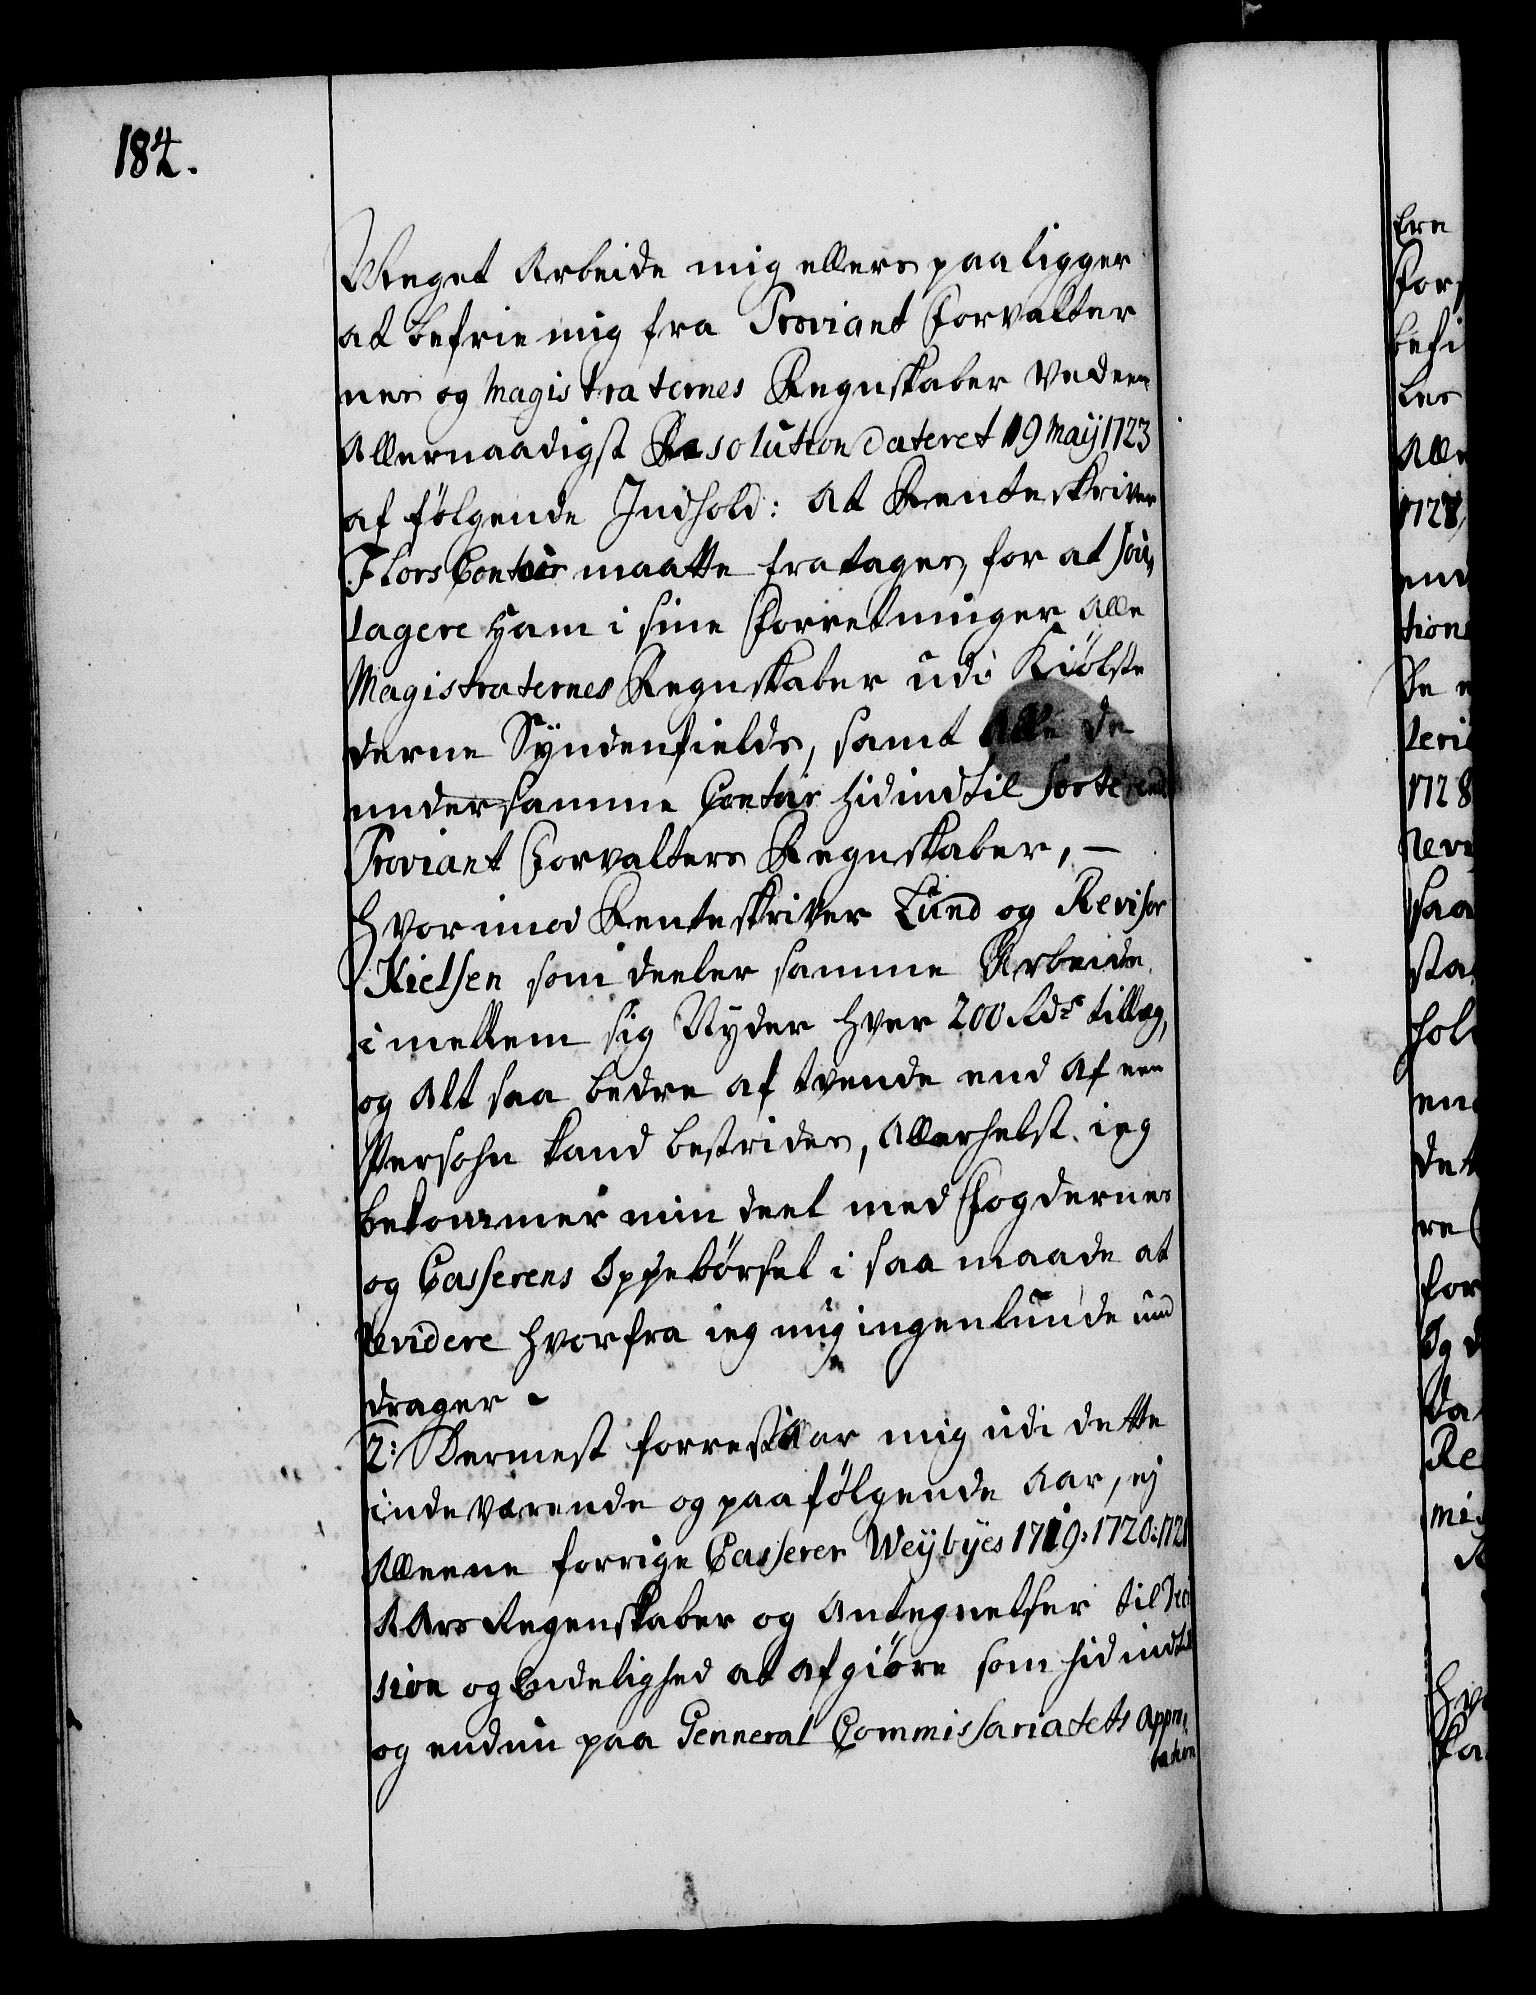 184.
Meget Arbeide mig ellers paaligger
at befrie mig fra Proviant Forvalter
nes og Magistraternes Regnskaber Ved een
Allernaadigst Resolution dateret 19 Maij 1723
af følgende Indhold: at Renteskriver
Flors Contoir maatte fratages, for at Sou,
lagere Ham i sine Forretninger Alle
Magistraternes Regnskaber udi Kiøbste
derne Syndenfields, samt Alle de
under samme Contoir hidindtil Sorterende
Proviant Forvalters Regnskaber, —
Hvorimod Renteskriver Lund og Revisor
Nielsen som deeler samme Arbeide
imellem sig Nyder hver 200 Rdr tillæg,
og Alt saa bedre af tvende end af een
Persohn kand bestrides, Allerhelst ieg
bekommer min deel med Fogdernes
og Casserens Oppebørsel i saa maade at
revidere hvorfra ieg mig ingenlunde und
drager -
2: Dernest forrestaar mig udi dette
indeværende og paafølgende Aar, ej
Alleene forrige Casserer Weybyes 1719: 1720: 1721
Aars Regenskaber og Antegnelser til Revi
sion og Endelighed at afgiøre som hidindtil
og endnu paa Genneral Commissariatets Appro,
bation
Ere
For
befi
les
Alle
1727,
end
tion
De
leri
1728
Rev
saa
sta
hol
en
det
re
for
Og
Da
Re
mis